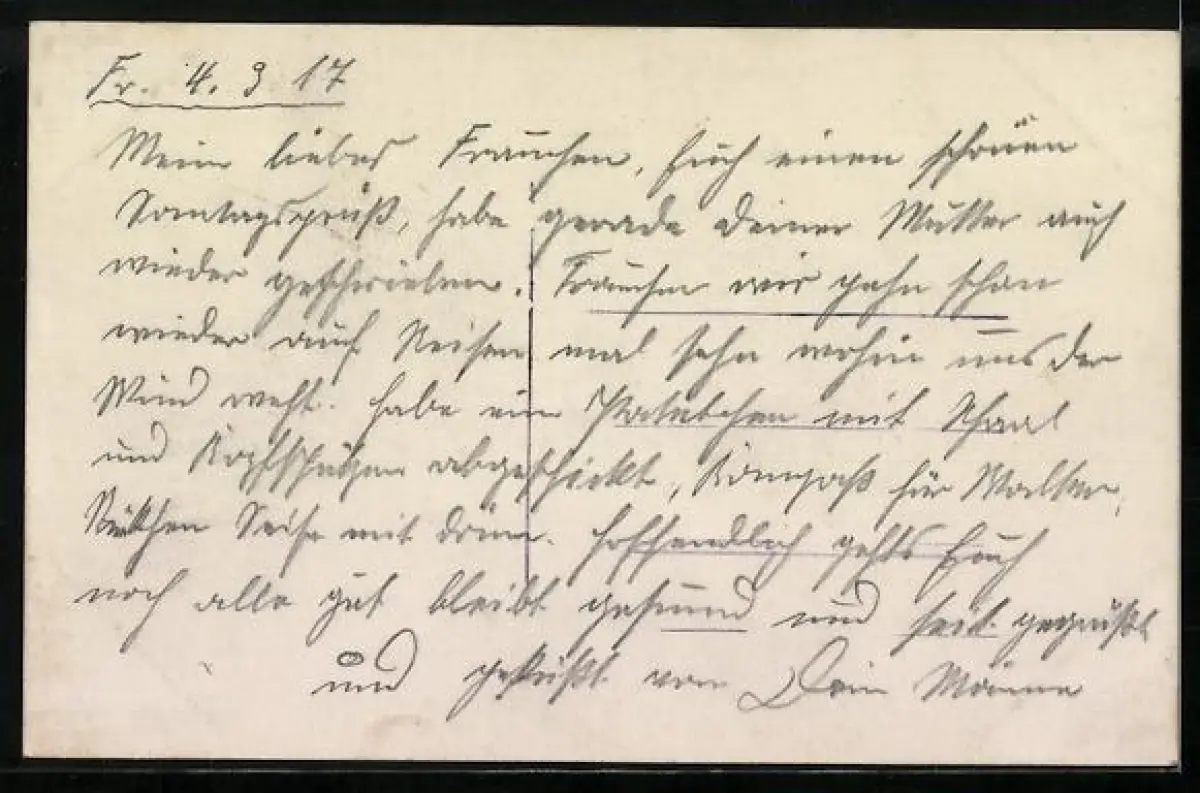 Fr. 4. 3 17
Mein liebes Frauchen, Euch einen schönen
Sonntagsgruß, habe gerade Deiner Mutter auch
wieder geschrieben. Frauchen wir gehn schon
wieder auf Reisen mal sehn wohin uns der
Wind weht. habe ein Paketchen mit Schaal
und Kopfschützer abgeschickt, Kompaß für Walter,
Stückchen Seife mit drinn. hoffendlich gehts Euch
noch alle gut bleibt gesund und seit gegrüßt
und geküßt von Dein Männe